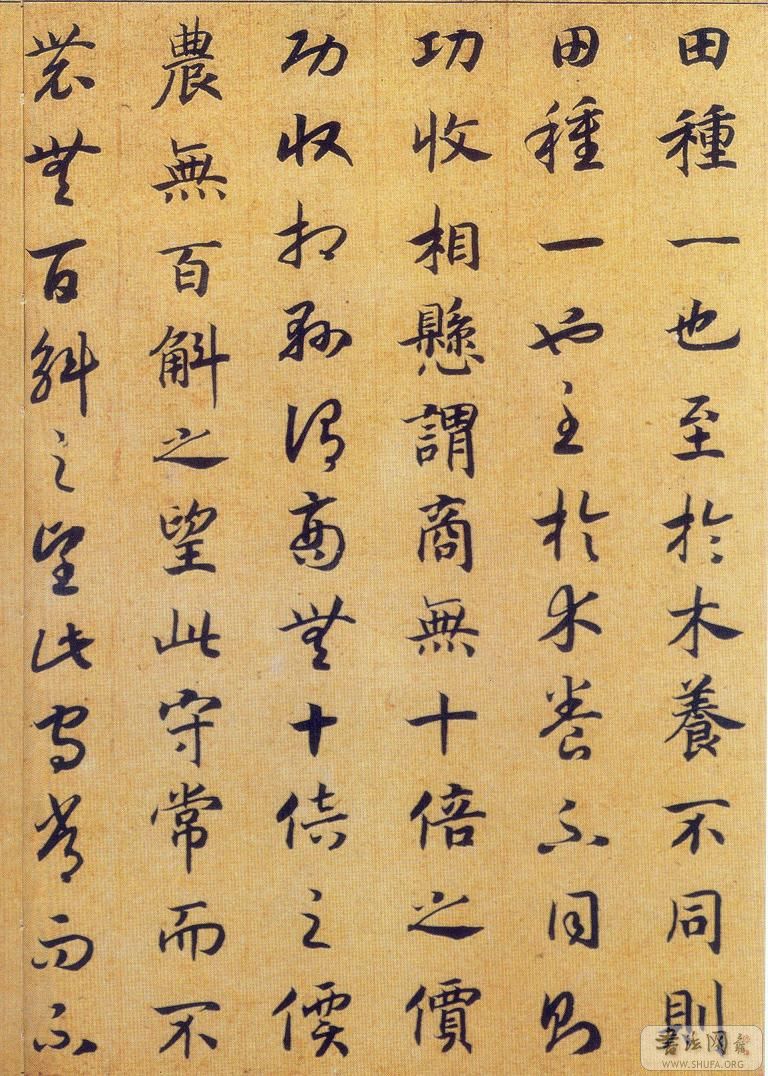 田種一也至於木養不同則
田種一也至於木養不同則
功收相懸謂商無十倍之價
功收相懸謂商無十倍之價
農無百斛之望此守常而不
農無百斛之望此守常而不
書法网
WWW.SHUFA.ORG